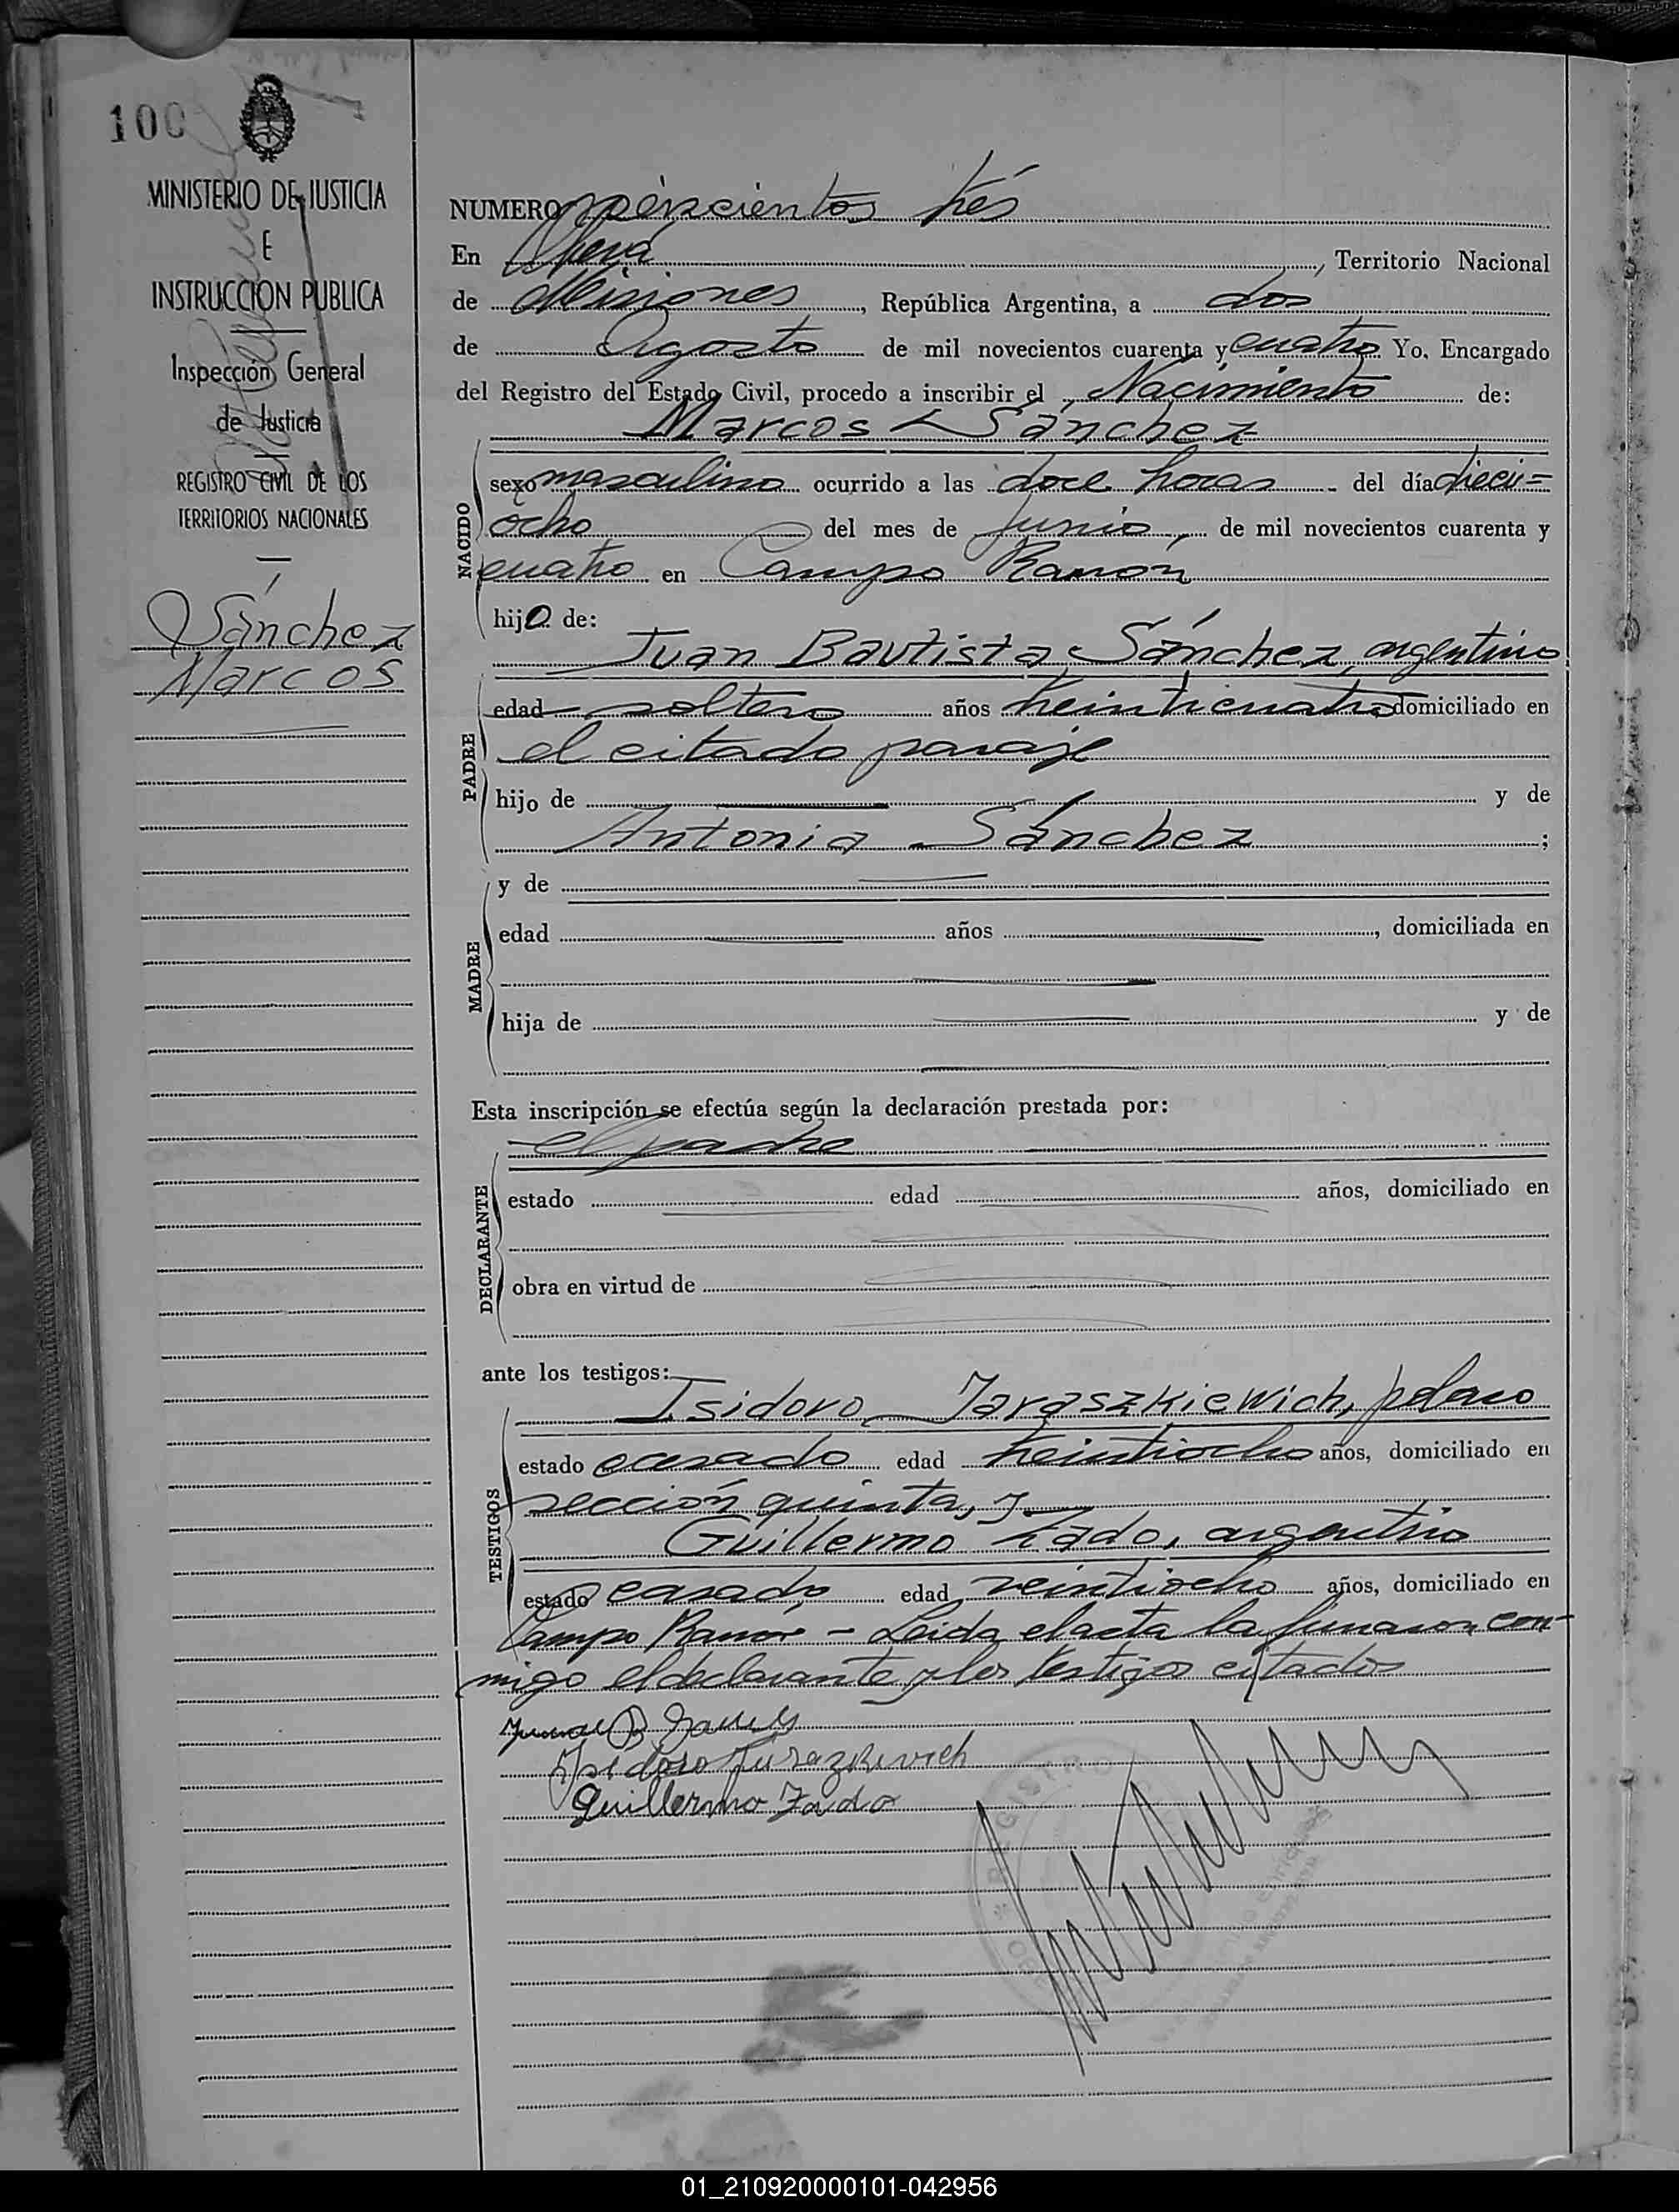 100
MINISTERIO DE JUSTICIA
E
INSTRUCCION PUBLICA
Inspección General
de Justicia
REGISTRO CIVIL DE LOS
TERRITORIOS NACIONALES
Sánchez
Marcos
NUMERO seiscientos trés
En Oberá, Territorio Nacional
de Misiones, República Argentina, a dos
de Agosto de mil novecientos cuarenta y cuatro Yo, Encargado
del Registro del Estado Civil, procedo a inscribir el Nacimiento de:
Marcos Sánchez
NACIDO
sexo masculino ocurrido a las doce horas del día dieci=
ocho del mes de Junio, de mil novecientos cuarenta y
cuatro en Campo Ramón
hijo de:
Juan Bautista Sánchez, argentino
PADRE
edad soltero años treinticuatro domiciliado en
el citado paraje
hijo de y de
Antonia Sánchez;
MADRE
y de
edad años, domiciliada en
hija de y de
Esta inscripción se efectúa según la declaración prestada por:
el padre
DECLARANTE
estado edad años, domiciliado en
obra en virtud de
ante los testigos:
Isidoro Jaraszkiewich, polaco
TESTIGOS
estado casado edad treintiocho años, domiciliado en
sección quinta, y
Guillermo Zado, argentino
estado casado edad veintiocho años, domiciliado en
Campo Ramón - Leida el acta la firmaron con-
migo el declarante y los testigos citados
Guillermo Zado
REGISTRO
01_210920000101-042956